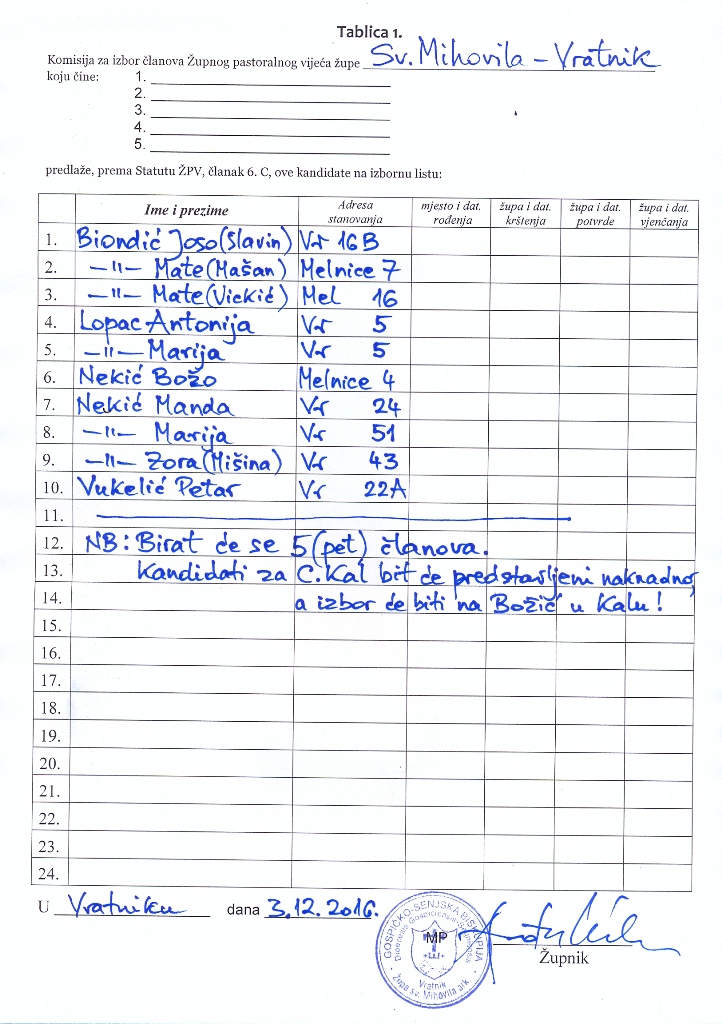 Tablica 1.
Komisija za izbor članova Župnog pastoralnog vijeća župe Sv. Mihovila – Vratnik
koju čine: 1.
2.
3.
4.
5.
predlaže, prema Statutu ŽPV, članak 6. C, ove kandidate na izbornu listu:
Ime i prezime Adresa stanovanja mjesto i dat. rođenja župa i dat. krštenja župa i dat. potvrde župa i dat. vjenčanja
1. Biondić Joso (Slavin) Vr 16B
2. –"– Mate (Mašan) Melnice 7
3. –"– Mate (Vickić) Mel 16
4. Lopac Antonija Vr 5
5. –"– Marija Vr 5
6. Nekić Božo Melnice 4
7. Nekić Manda Vr 24
8. –"– Marija Vr 51
9. –"– Zora (Mišina) Vr 43
10. Vukelić Petar Vr 22A
11.
12. NB: Birat će se 5 (pet) članova.
13. Kandidati za C. Kal bit će predstavljeni naknadno,
14. a izbor će biti na Božić u Kalu!
15.
16.
17.
18.
19.
20.
21.
22.
23.
24.
U Vratniku dana 3.12.2016.
GOSPIĆKO-SENJSKA BISKUPIJA
MP
Vratnik
Župa sv. Mihovila ark.
Župnik